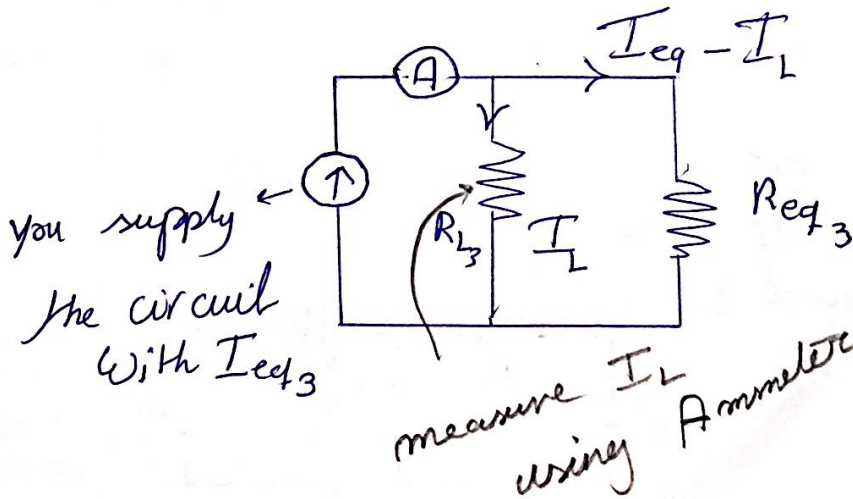 I_eq - I_L
A
you supply
the circuit
with I_eq3
R_L3
I_L
R_eq3
measure I_L
using Ammeter